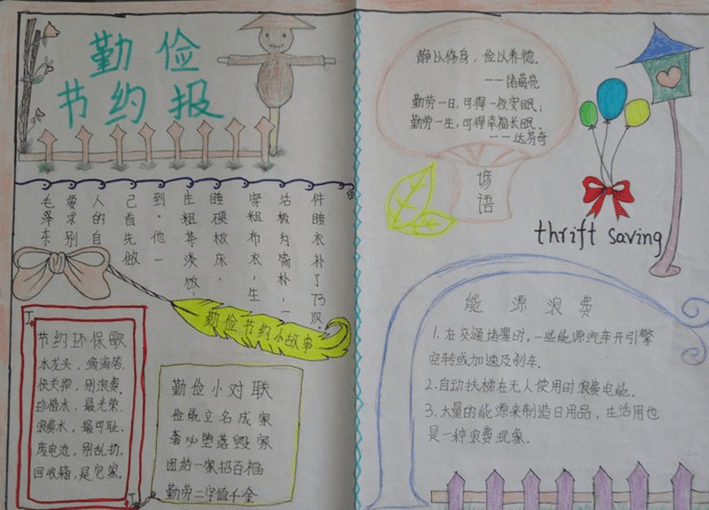 勤俭
节约报
毛泽东
要求别
人的自
己首先做
到。他一
生粗茶淡饭，
睡硬板床，
穿粗布衣，生
活极为简朴，一
件睡衣补了73次，
勤俭节约小故事
节约环保歌
水龙头，滴滴答。
快关押，别浪费。
珍惜水，最光荣。
浪费水，最可耻。
废电池，别乱扔，
回收箱，是它家。
勤俭小对联
俭能立名成家
奢必堕落毁家
团结一家招百福
勤劳二字值千金
静以修身，俭以养德。
——诸葛亮
勤劳一日，可得一夜安眠；
勤劳一生，可得幸福长眠。
——达芬奇
谚语
thrift saving
能源浪费
1.在交通堵塞时，一些能源汽车开引擎
空转或加速及刹车。
2.自动扶梯在无人使用时浪费电能。
3.大量的能源来制造日用品，生活用也
是一种浪费现象。